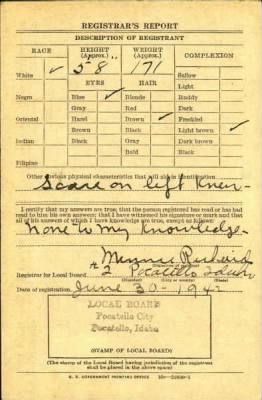 REGISTRAR'S REPORT
DESCRIPTION OF REGISTRANT
RACE HEIGHT (Approx.) WEIGHT (Approx.) COMPLEXION
White ✓ 5 8 171 Sallow
EYES HAIR Light
Negro Blue ✓ Blonde Ruddy
Gray Red Dark
Oriental Hazel Brown ✓ Freckled
Brown Black Light brown ✓
Indian Black Gray Dark brown
Bald Black
Filipino
Other obvious physical characteristics that will aid in identification
Scare on left knee-
I certify that my answers are true; that the person registered has read or has had
read to him his own answers; that I have witnessed his signature or mark and that
all of his answers of which I have knowledge are true, except as follows:
none to my knowledge-
Registrar for Local Board # 2 Pocatello Idaho
(Number) (City or county) (State)
Date of registration June 30-1942
LOCAL BOARD
Pocatello City
Pocatello, Idaho
(STAMP OF LOCAL BOARD)
(The stamp of the Local Board having jurisdiction of the registrant
shall be placed in the above space)
U. S. GOVERNMENT PRINTING OFFICE